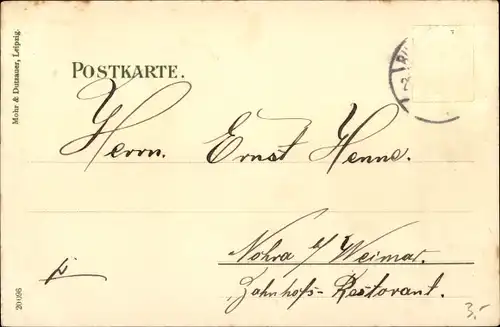 Mohr & Dutzauer, Leipzig.
POSTKARTE.
Herrn. Ernst Henne.
Nohra a/ Weimar.
Bahnhofs-Restorant.
20096
3.-